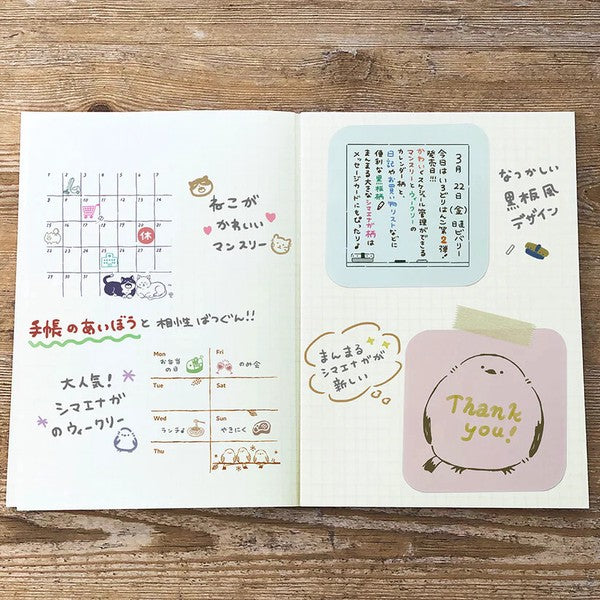 1 2 3 4 5 6 7
8 9 10 11 12 13 14
15 16 17 18 19 休 21
22 23 24 25 26 27 28
29 30 31
ねこが
かわいい
マンスリー
手帳のあいぼうと相性ばつぐん!!
大人気!
シマエナガ
のウィークリー
Mon
お弁当
の日
Fri
のみ会
Tue
Sat
Wed
ランチ
Sun
やきにく
Thu
3月 22日(金) 日直 ビバリー
今日はいろどりはんこ第2弾!
発売日!!!
かわいくスケジュール管理ができる
マンスリーとウィークリーの
カレンダー柄と、
日記やお買い物リストなどに
便利な黒板柄
まんまる大きなシマエナガ柄は
メッセージカードにもぴったり♪
なつかしい
黒板風
デザイン
まんまる
シマエナガが
新しい
Thank
you!